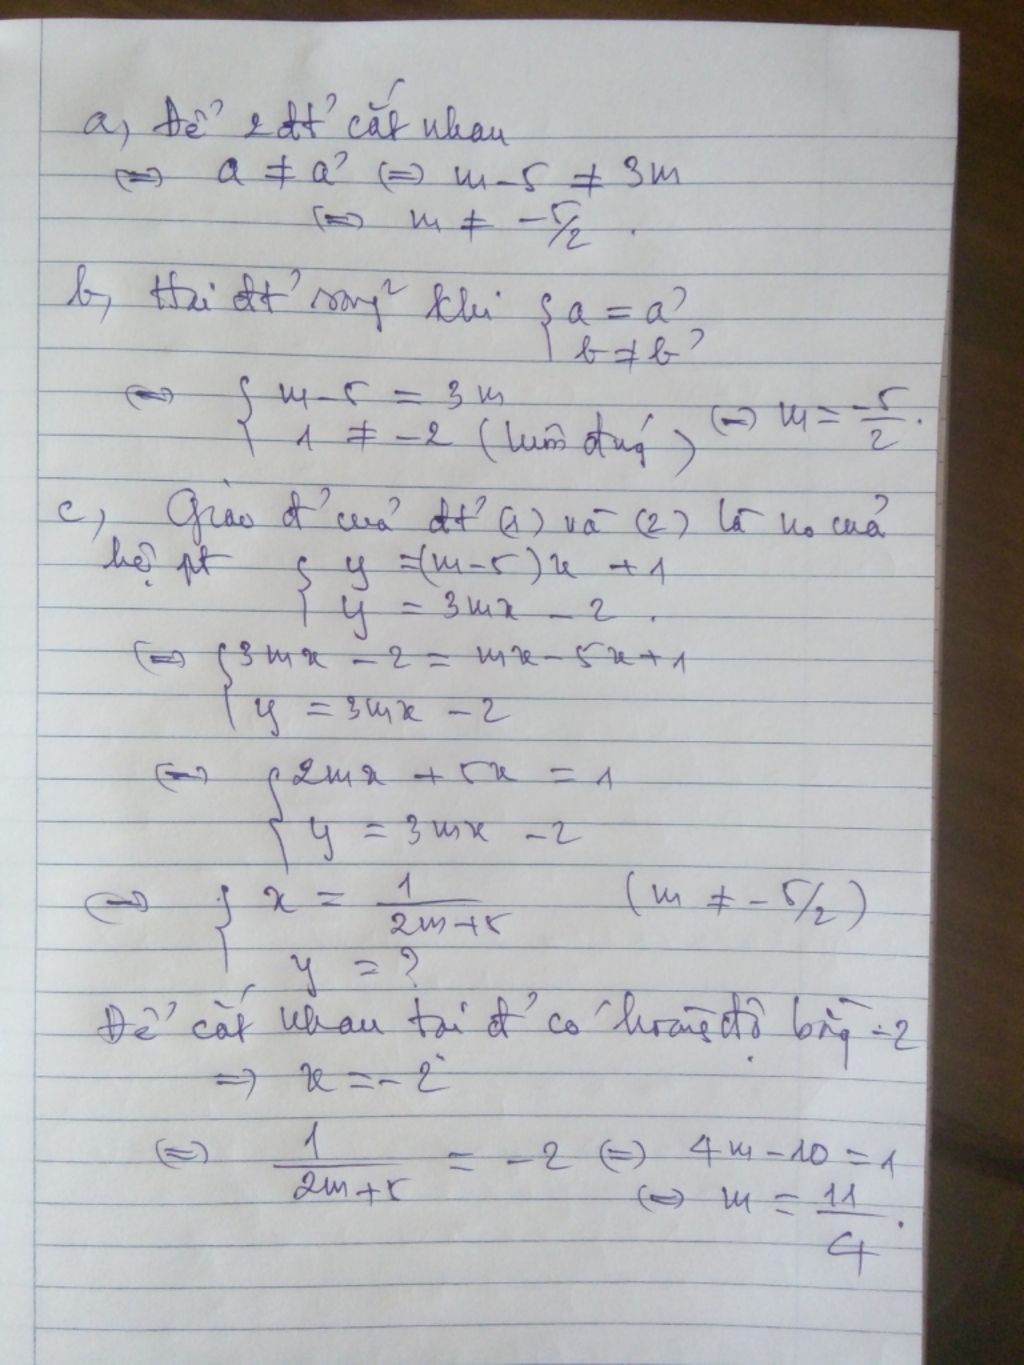 a, Để 2 đt' cắt nhau
⇔ a ≠ a' ⇔ m-5 ≠ 3m
⇔ m ≠ -5/2 .
b, Hai đt' song² khi { a = a'
b ≠ b'
⇔ { m-5 = 3m
1 ≠ -2 (luôn đúng) ⇔ m = -5/2 .
c, Giao đ' của đt' (1) và (2) là no của
hệ pt { y = (m-5)x + 1
y = 3mx - 2 .
⇔ { 3mx - 2 = mx - 5x + 1
y = 3mx - 2
⇔ { 2mx + 5x = 1
y = 3mx - 2
⇔ { x = 1/(2m+5) (m ≠ -5/2)
y = ?
Để cắt nhau tại đ' có hoành độ bằng -2
⇒ x = -2
⇔ 1/(2m+5) = -2 ⇔ 4m - 10 = 1
⇔ m = 11/4 .